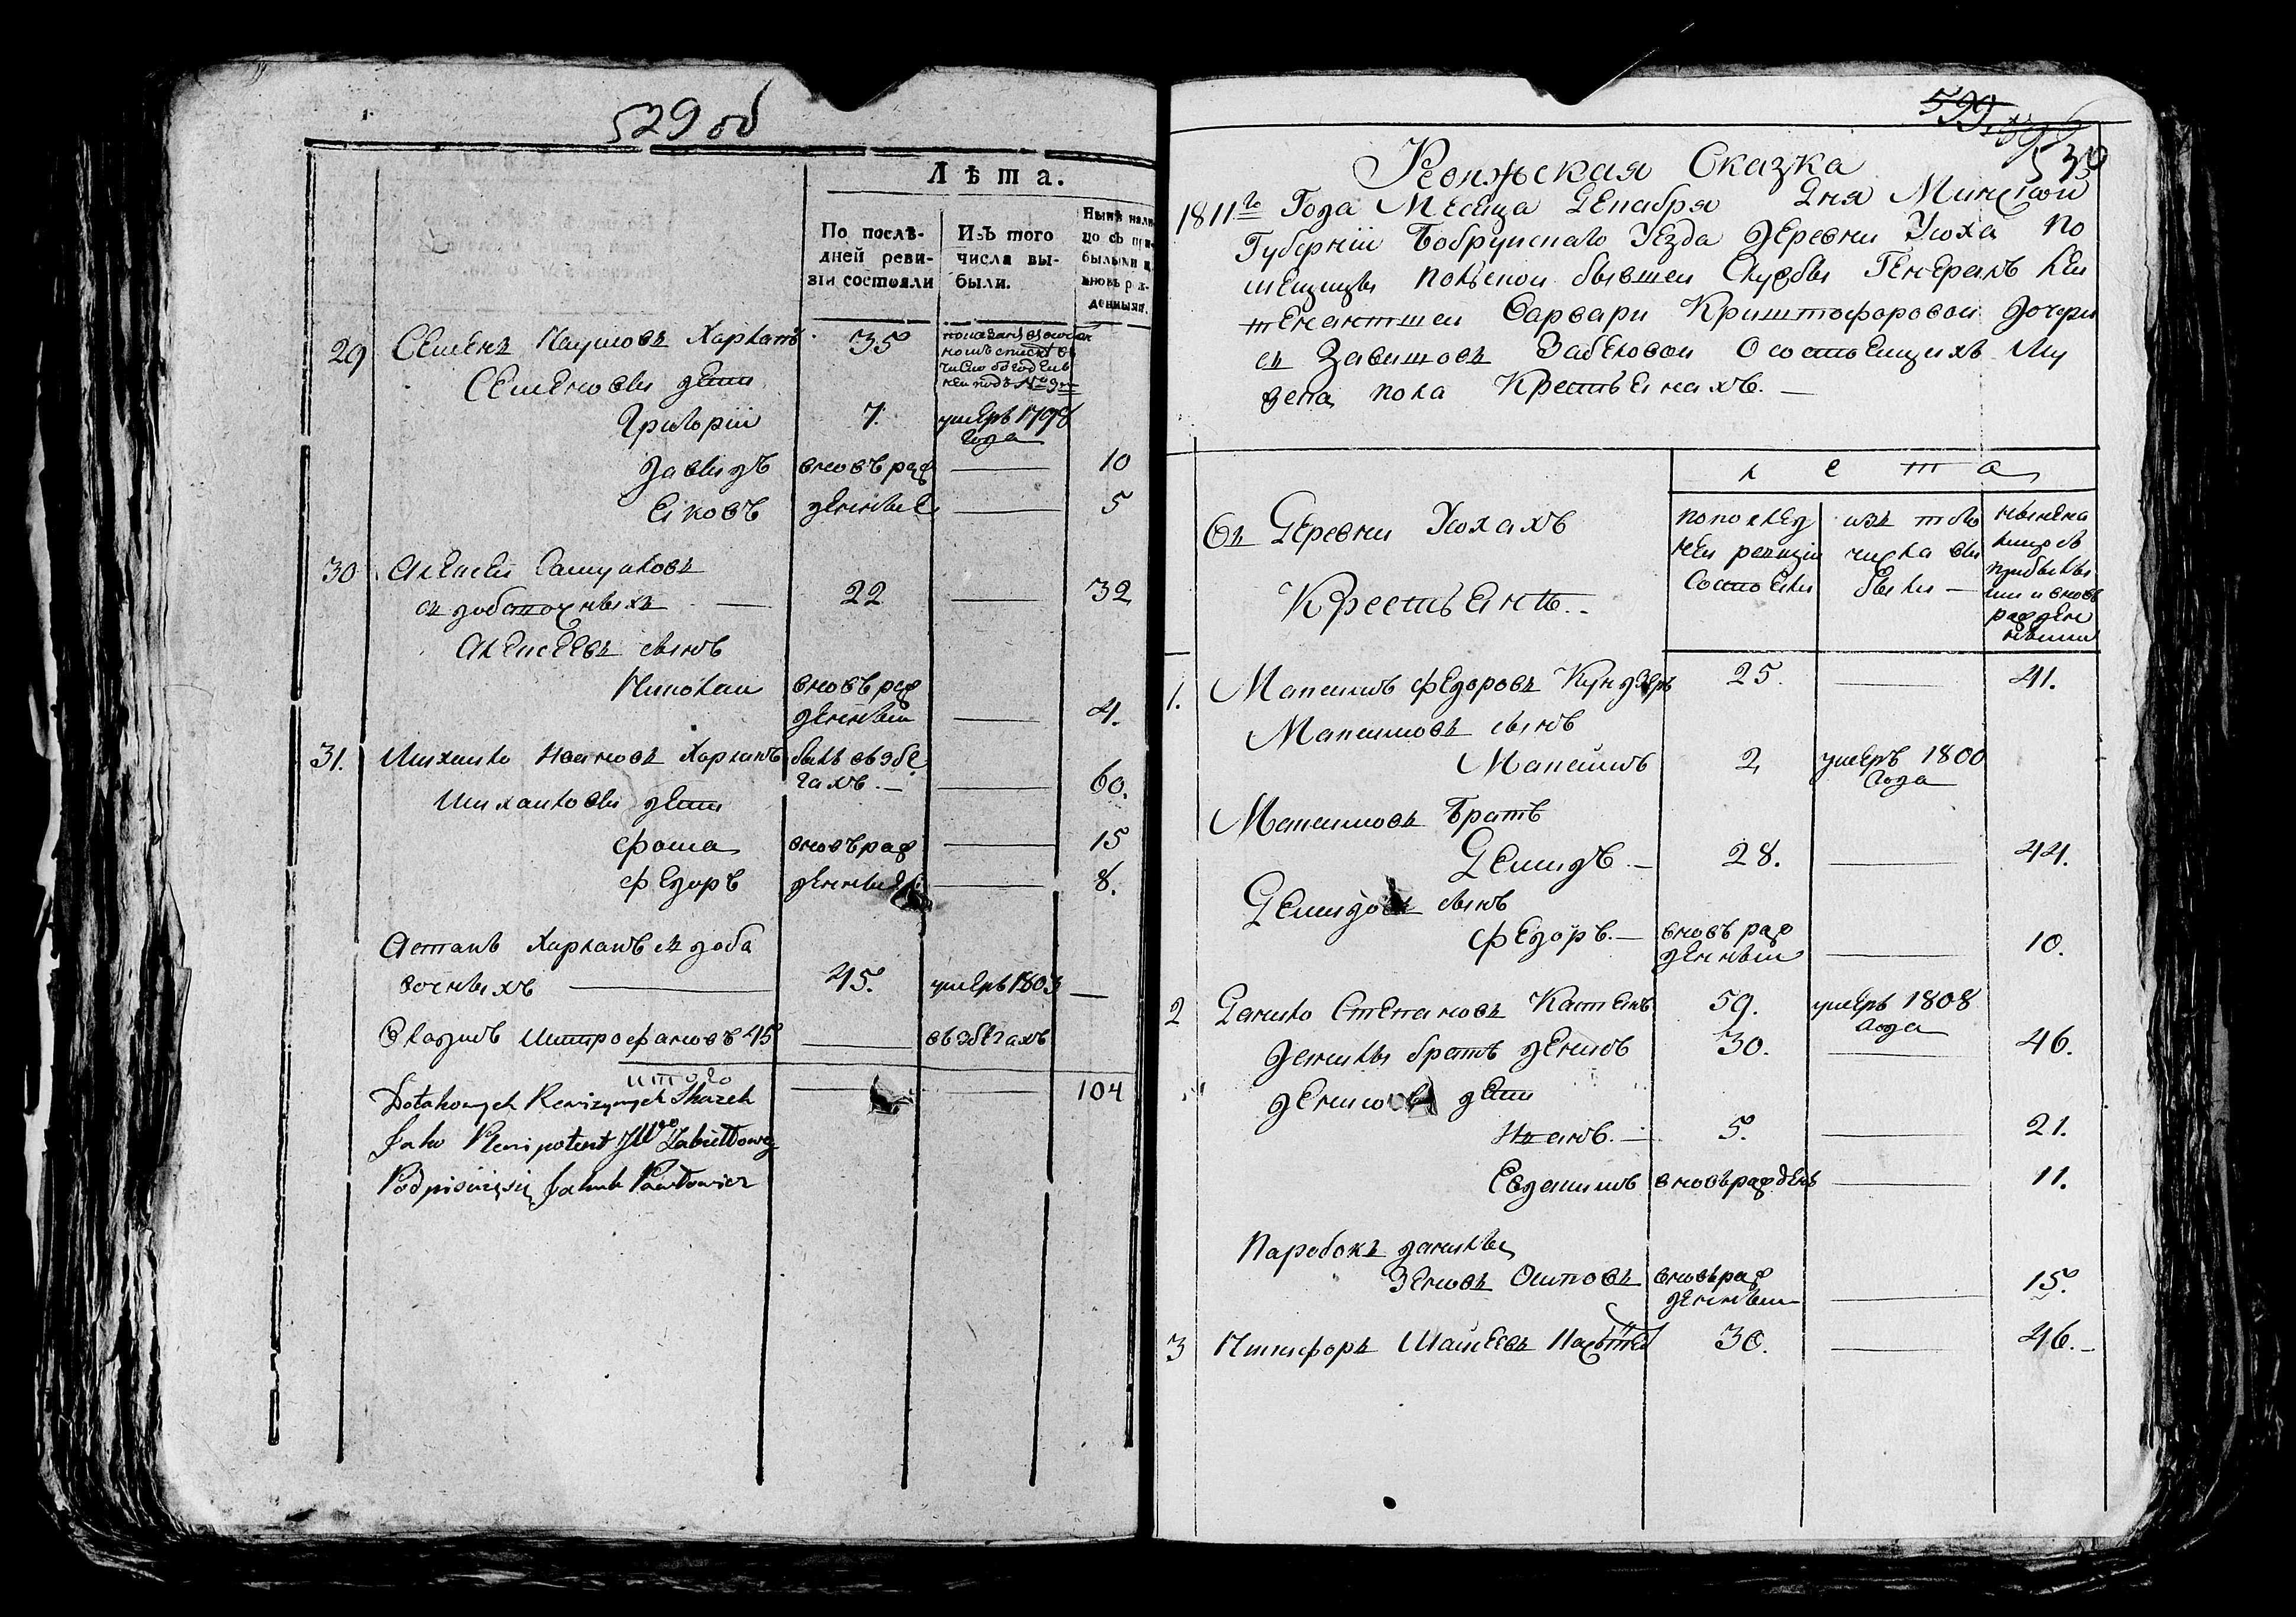 529 об
Лѣта.
По послѣ-
дней реви-
зіи состояли
Изъ того
числа вы-
были.
Нынѣ нали
цо съ при-
былыми и
вновь рож-
денными.
29 Семенъ Наумовъ Харланъ 35
Семеновы дети
Григорiй 7. умеръ 1798
года
Давыдъ вновъ раж 10
Еяковъ денные 5
30 Алексей Самуиловъ
22 32
Алексеевъ сынъ
Николай вновъ раж
денный 4.
31. Михайло Ивановъ Харланъ былъ въ збе
гахъ. 60.
Михайловы дети
Фома вновъ раж 15
Федоръ денные 8.
Астапъ Харланъ из доба
вочныхъ 45. умеръ 1803
Владимъ Митрофановъ 45 въ збегахъ
итого 104
Dotakowych Rewizyynych Skazek
Jako Plenipotent JW Zabiełłowey
Podpisuię się Jakub Pawłowicz
599
530
Ревижская Сказка
1811го Года Месеца Декабря Дня Минской
Губернiи Бобруйскаго Уезда деревни Усоха По
мещицы Польской бывшей Службы Генералъ Лей
тенантшей Варвари Криштофоровой дочери
из Завишовъ Забеловой О состоещихъ Му
жеска пола Крестьеянахъ.
л е т а
Въ Деревни Усохахъ
Крестьеянъ.
по послед
ней ревизiи
Состоели
изъ того
числа вы
были
ныне на
лицо съ
прибылы
ми и вновъ
рожден
ными
1. Максимъ Федоровъ Кундзеръ 25. 41.
Максимовъ сынъ
Максимъ 2 умеръ 1800
года
Максимовъ Братъ
Демидъ. 28. 44.
Демидовъ сынъ
Федоръ. вновъ раж
денный 10.
2 Данило Степановъ Каштанъ 59. умеръ 1808
года
Данилы братъ Денисъ 30. 46.
Денисовы дети
Иванъ. 5. 21.
Евдокимъ вновъ ражденъ 11.
Паробокъ данилы
Зеновъ Осиповъ вновъ раж
денный 15.
3 Никифоръ Майсеевъ 30. 46.